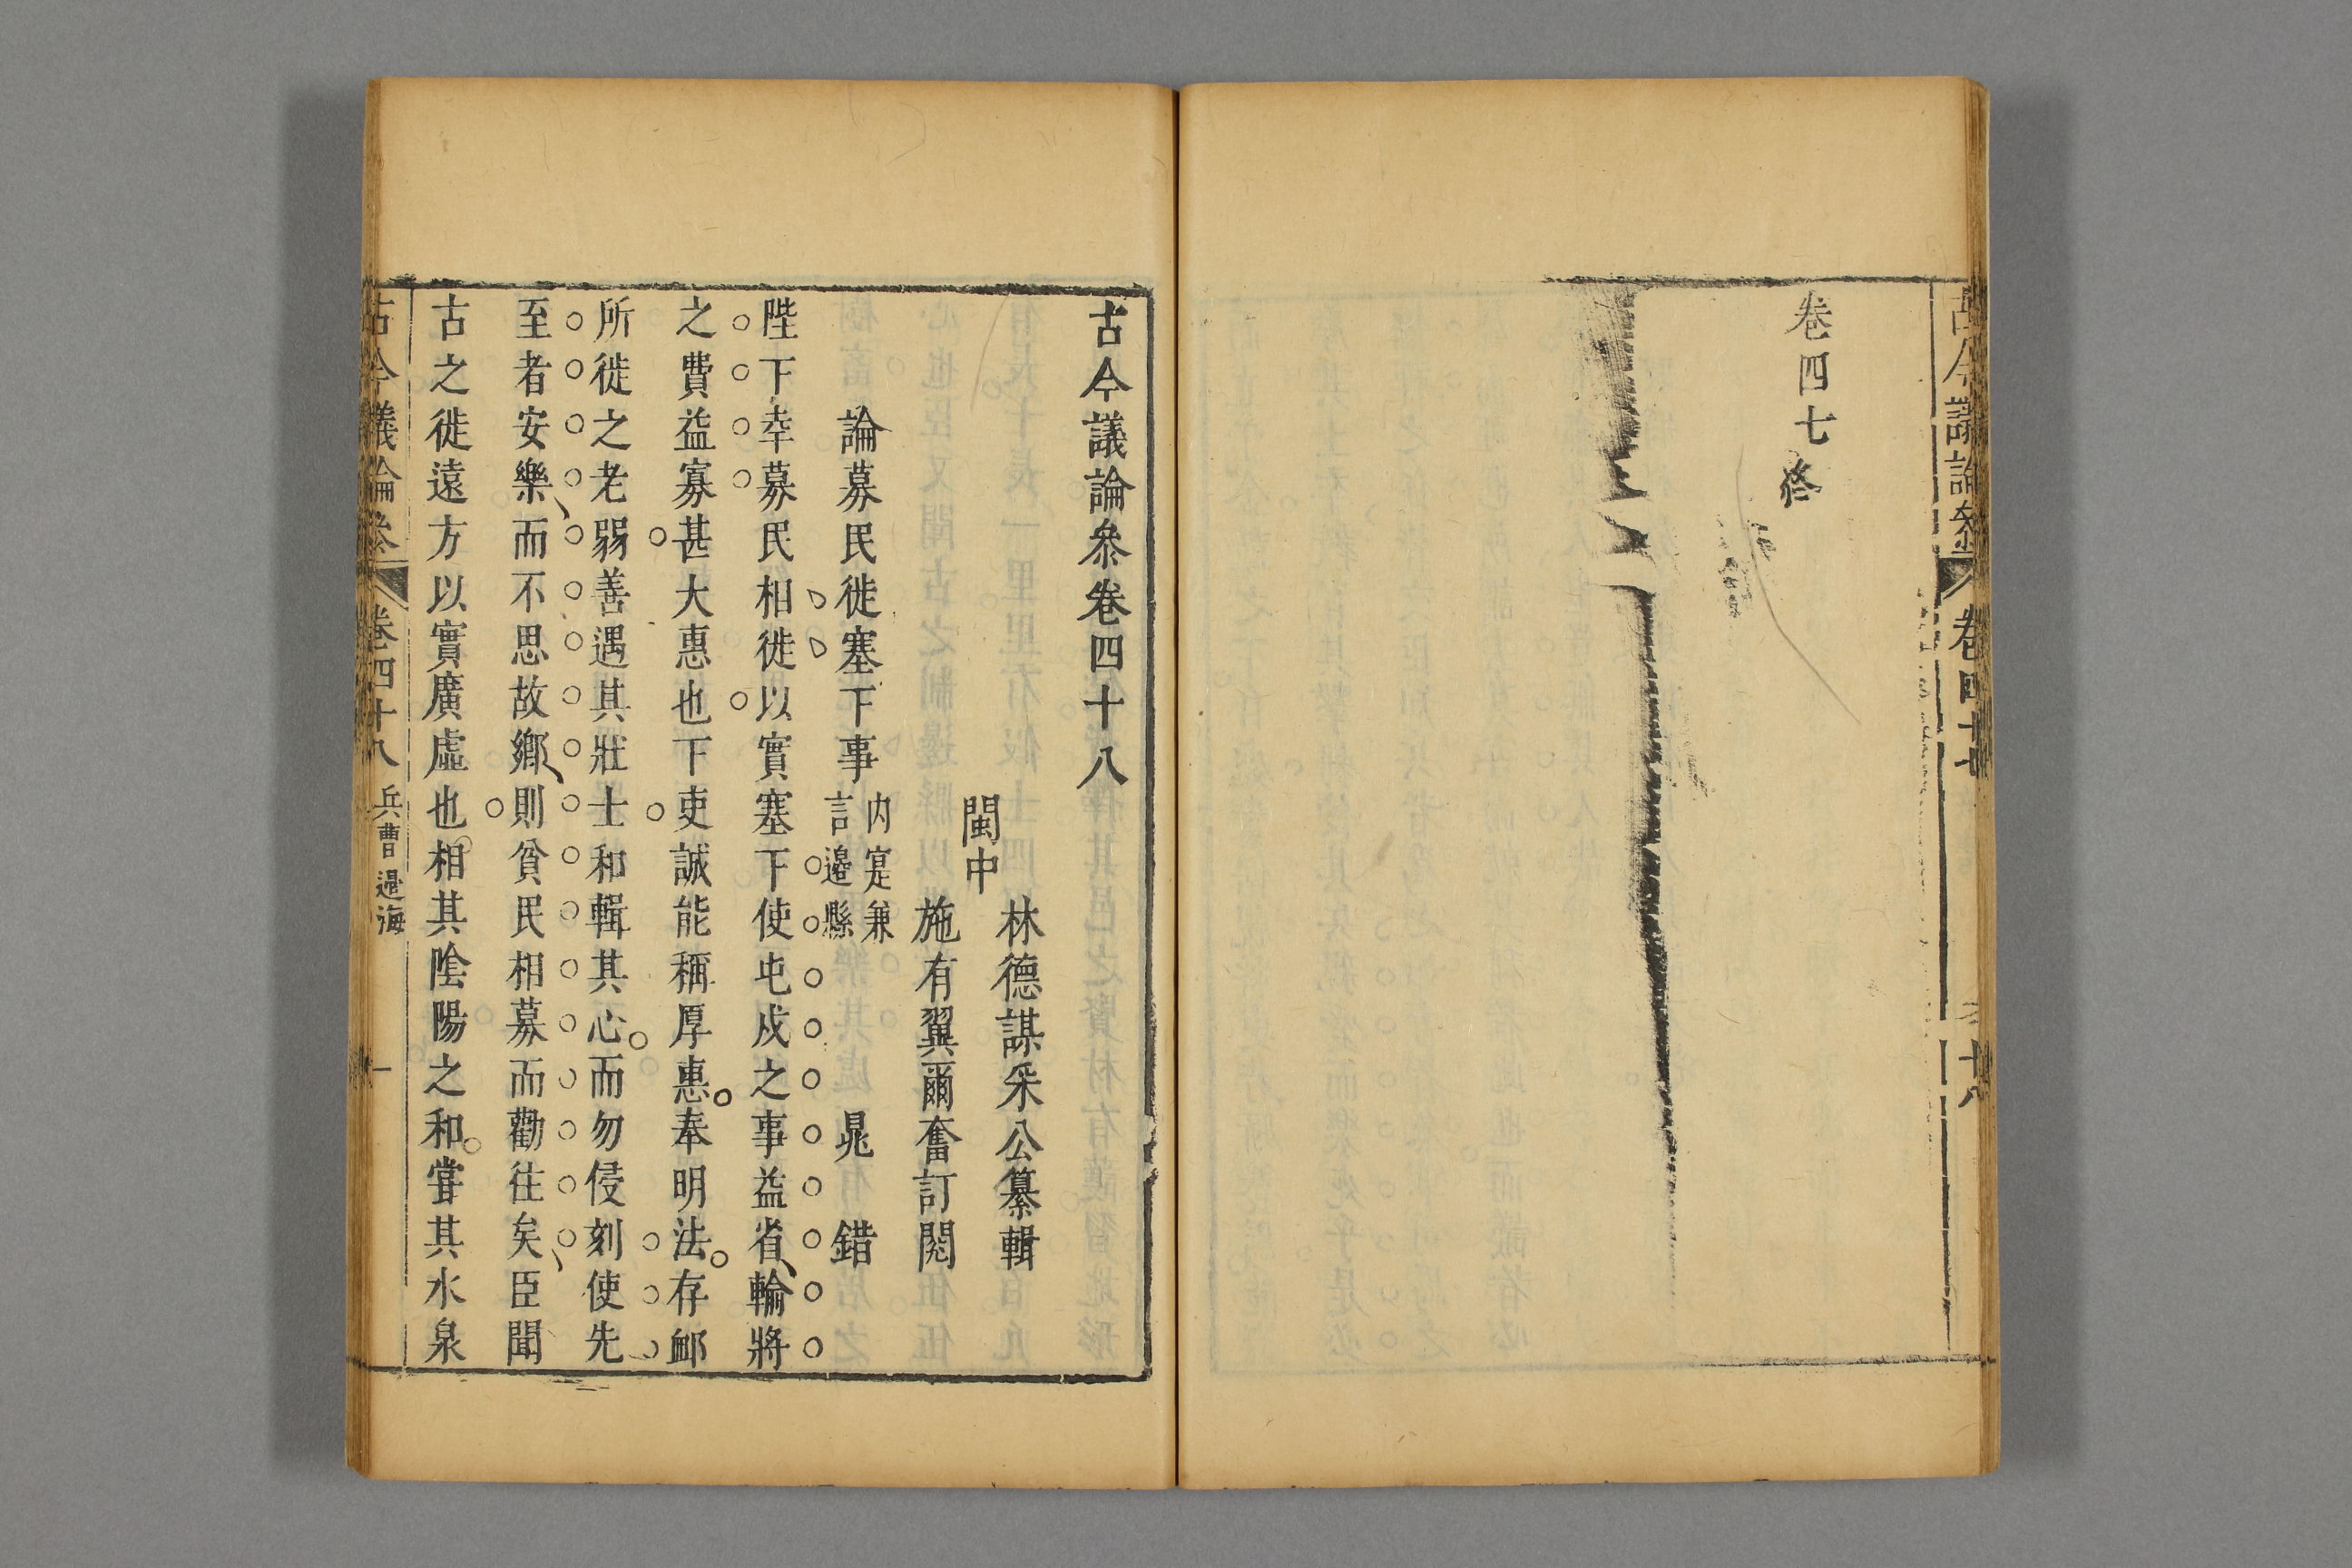 古今議論叅
卷四十七
卷四七終
古今議論叅卷四十八
林德謀采公纂輯
閩中
施有翼爾奮訂閱
論募民徙塞下事
内寔兼
言邉縣
晁錯
陛下幸募民相徙以實塞下使屯戍之事益省輸將
之費益寡甚大惠也下吏誠能稱厚惠奉明法存䘏
所徙之老弱善遇其壯士和輯其心而勿侵刻使先
至者安樂而不思故鄉則貧民相募而勸往矣臣聞
古之徙遠方以實廣虛也相其陰陽之和嘗其水泉
古今議論叅
卷四十八
兵曹
邉海
一